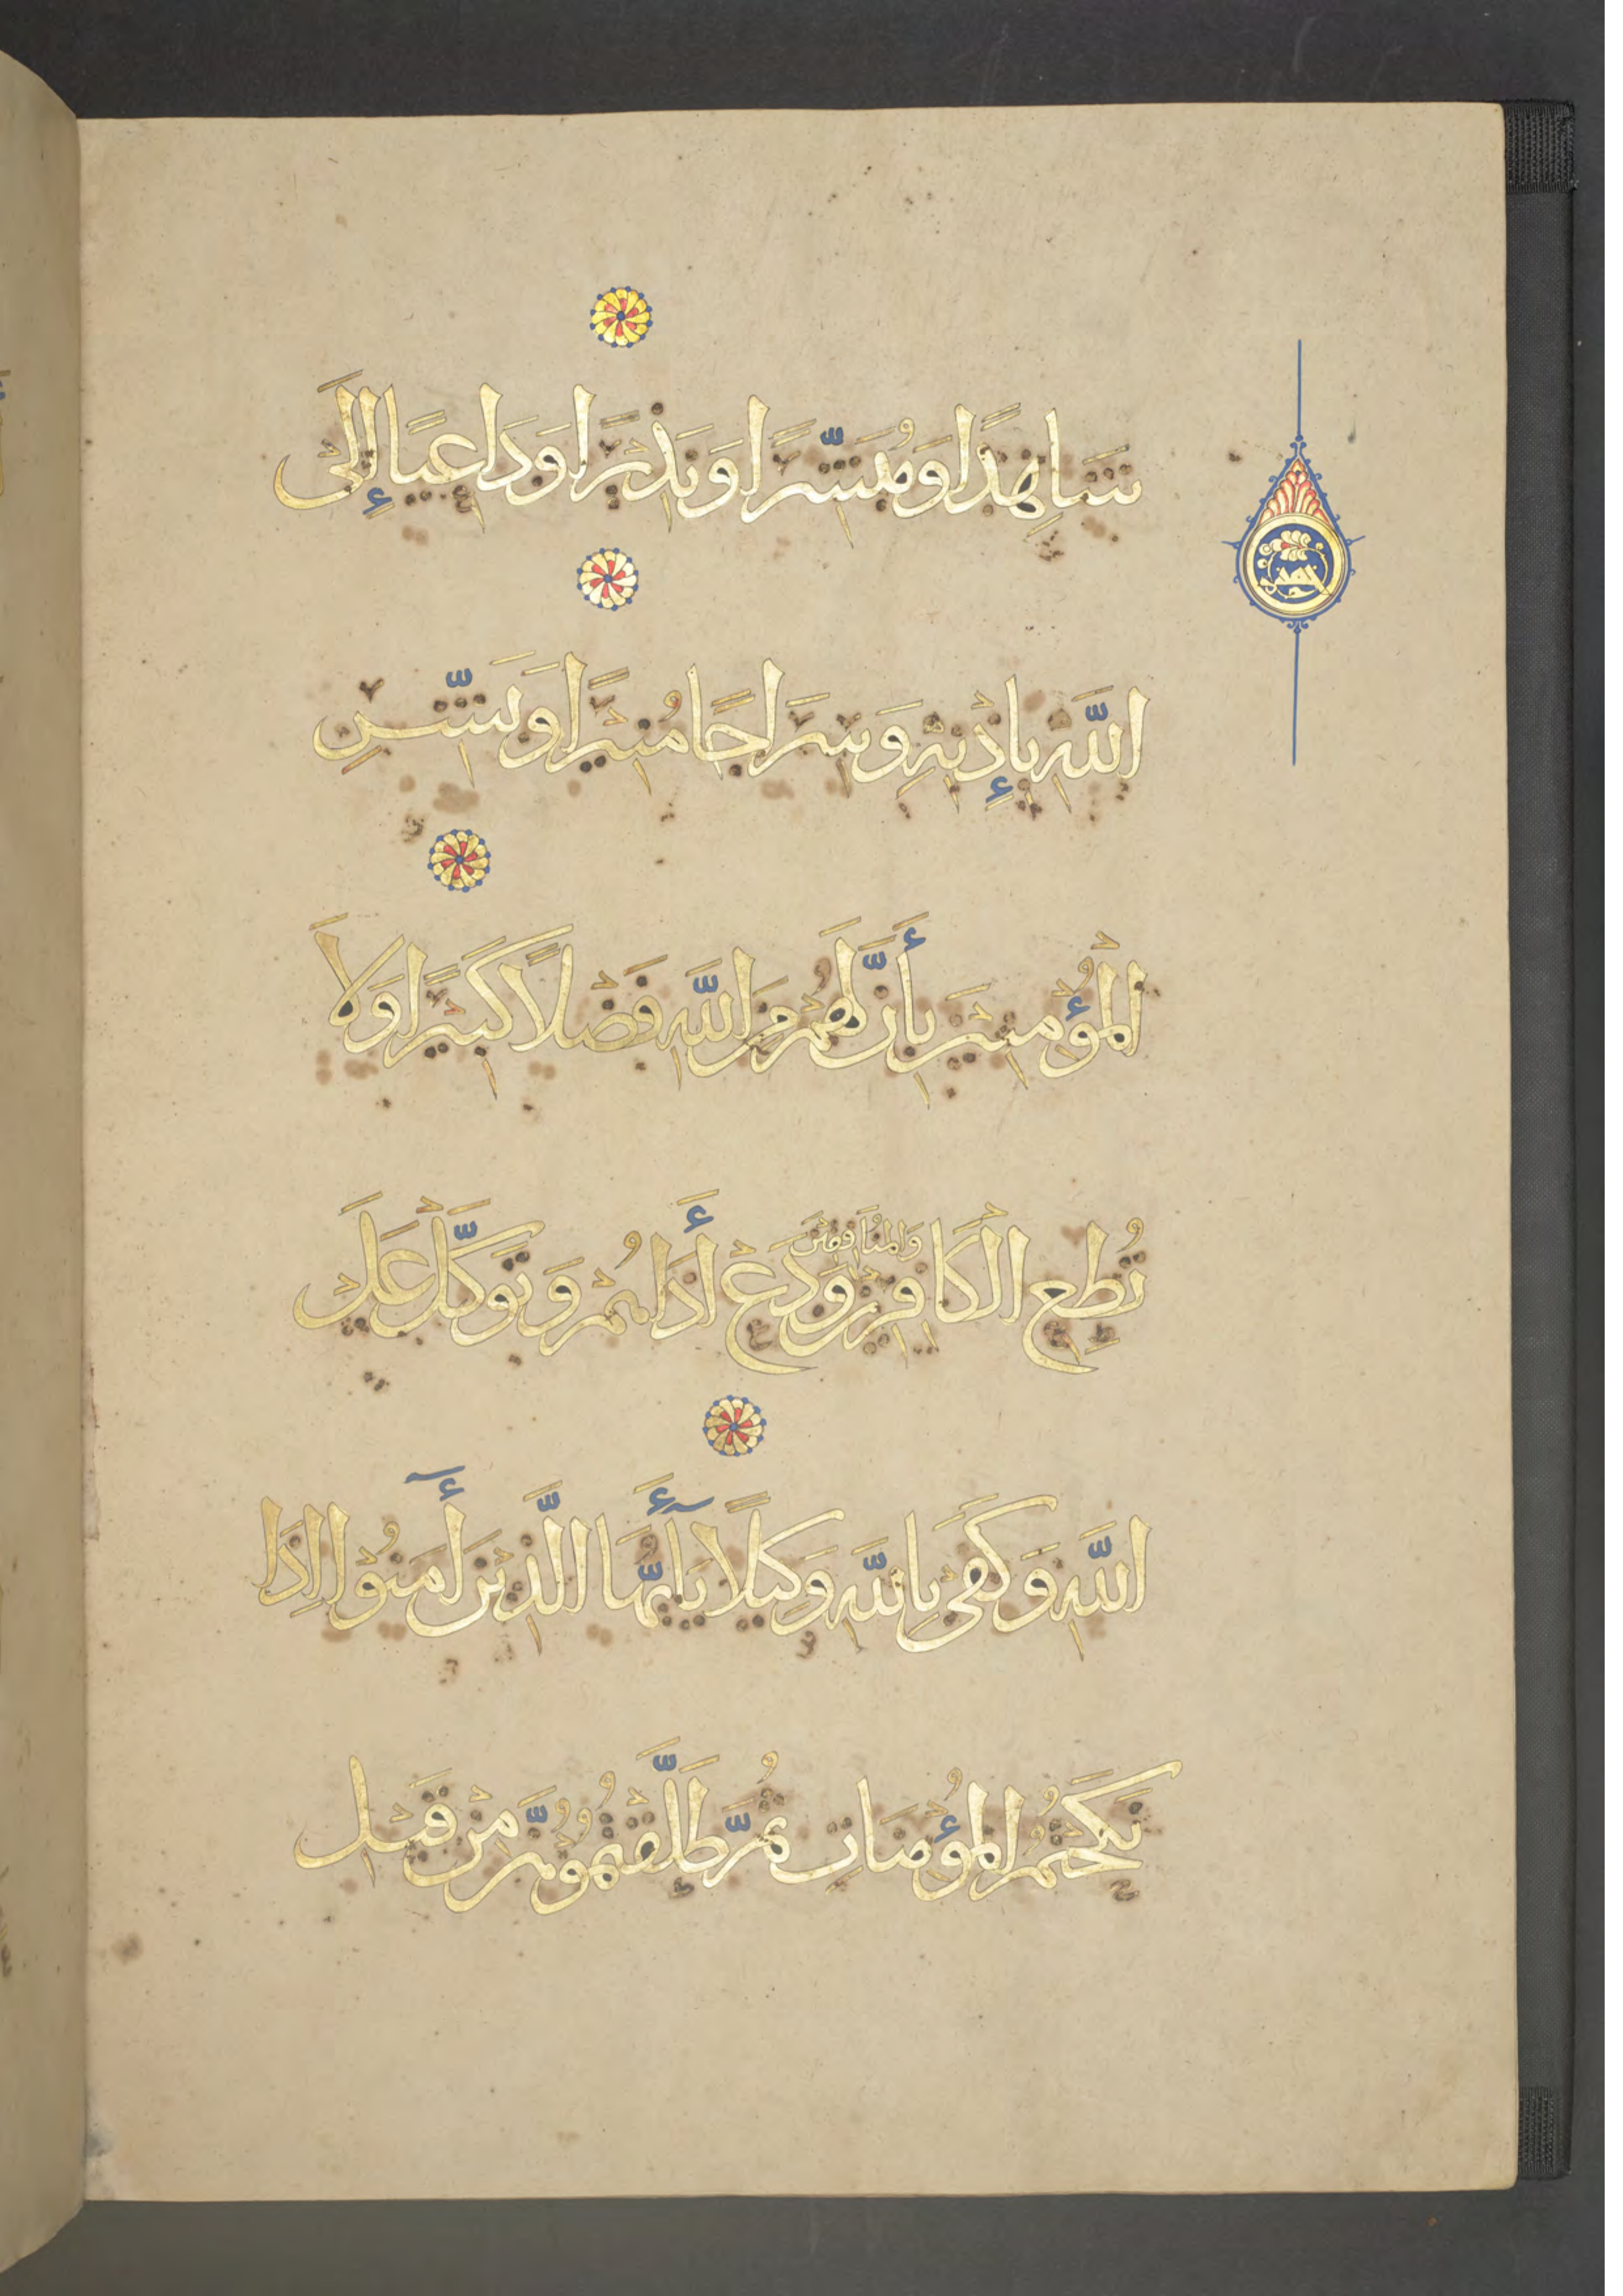 شَاهِدًا وَمُبَشِّرًا وَنَذِيرًا وَدَاعِيًا إِلَى
خمس
اللَّهِ بِإِذْنِهِ وَسِرَاجًا مُنِيرًا وَبَشِّرِ
الْمُؤْمِنِينَ بِأَنَّ لَهُمْ مِنَ اللَّهِ فَضْلًا كَبِيرًا وَلَا
تُطِعِ الْكَافِرِينَ وَالْمُنَافِقِينَ وَدَعْ أَذَاهُمْ وَتَوَكَّلْ عَلَى
اللَّهِ وَكَفَى بِاللَّهِ وَكِيلًا يَاأَيُّهَا الَّذِينَ أَمَنُوا إِذَا
نَكَحْتُمُ الْمُؤْمِنَاتِ ثُمَّ طَلَّقْتُمُوهُنَّ مِنْ قَبْلِ